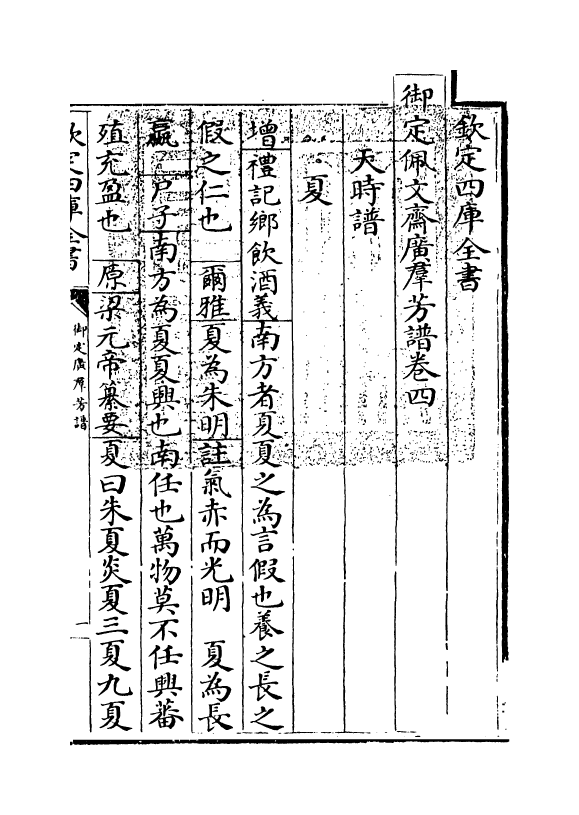 欽定四庫全書
御定佩文齋廣羣芳譜卷四
天時譜
夏
增禮記鄉飲酒義南方者夏夏之為言假也養之長之
假之仁也　爾雅夏為朱明註氣赤而光明　夏為長
嬴　尸子南方為夏夏興也南任也萬物莫不任興蕃
殖充盈也　原梁元帝纂要夏曰朱夏炎夏三夏九夏
欽定四庫全書
御定廣羣芳譜
一